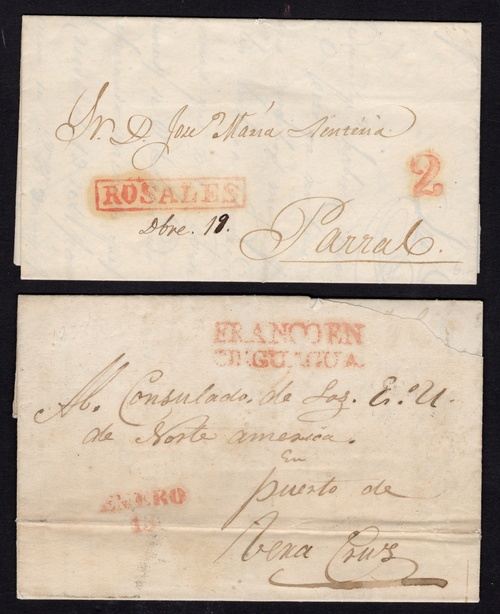 Sr. D. José María
ROSALES
2
Dbre. 19.
Parral.
FRANCO EN
CHIGUAGUA
Al. Consulado. de Los. E. U.
de Norte america.
En
puerto de
Vera Cruz
ENERO